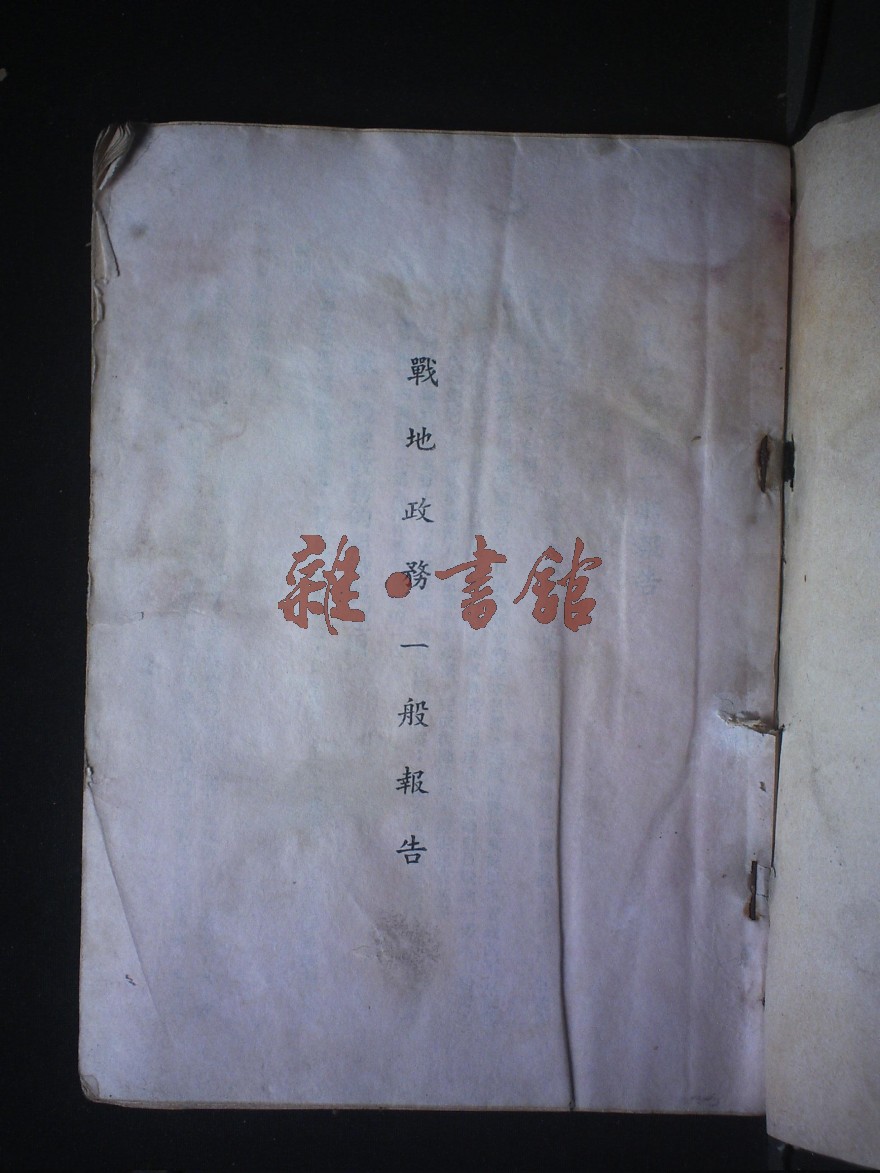 戰地政務一般報告
雜·書館